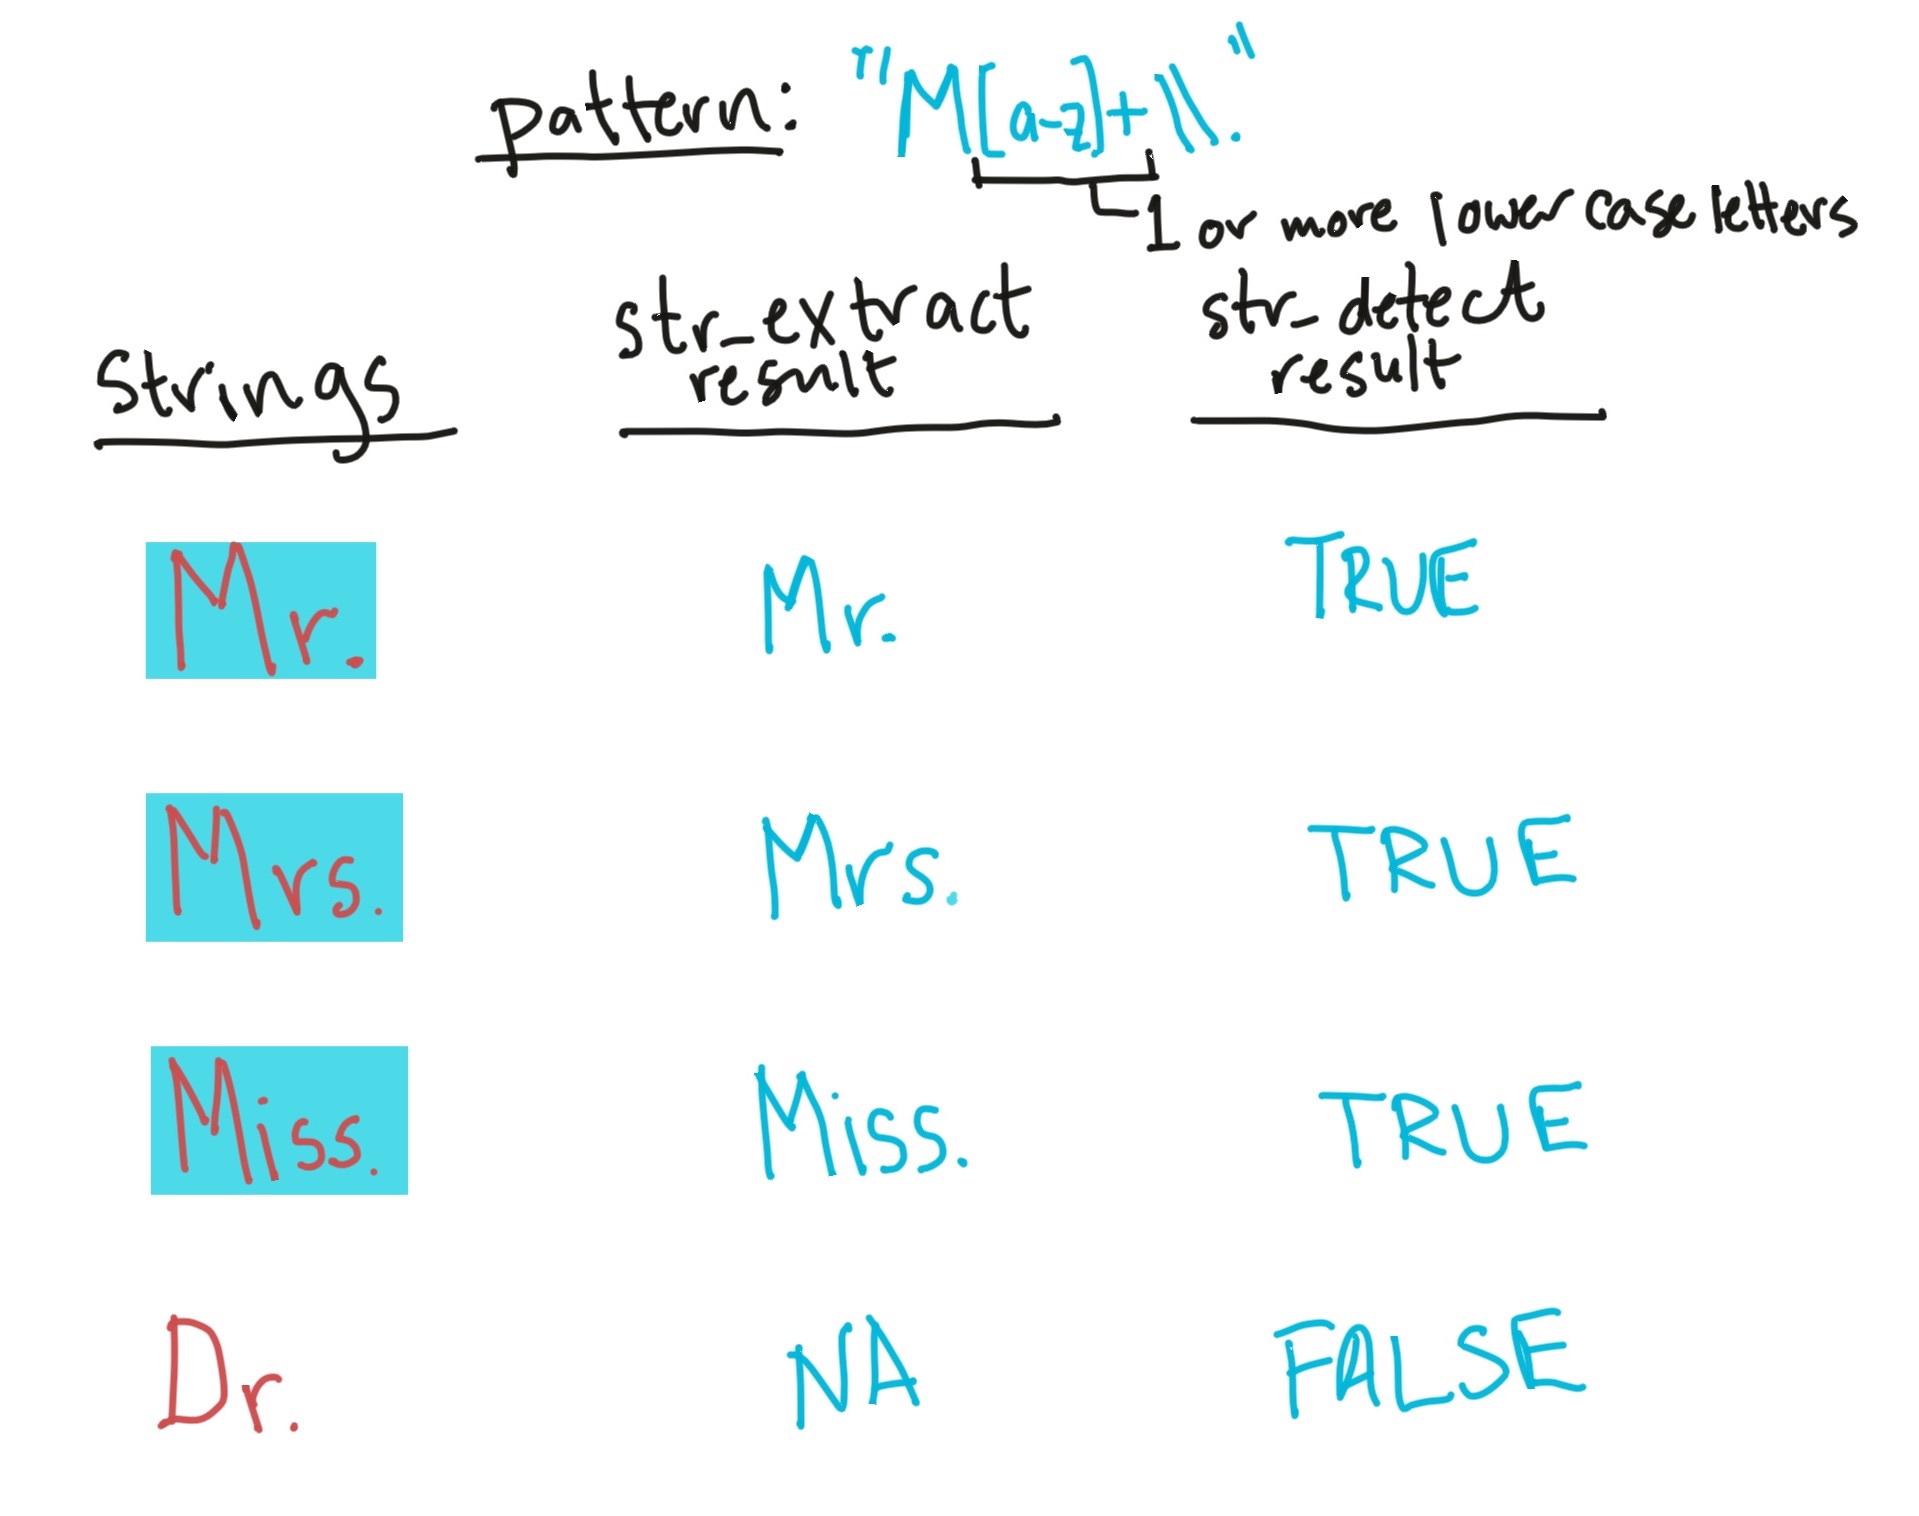 pattern: "M[a-z]+\\."
1 or more lowercase letters
strings str_extract result str_detect result
Mr. Mr. TRUE
Mrs. Mrs. TRUE
Miss. Miss. TRUE
Dr. NA FALSE